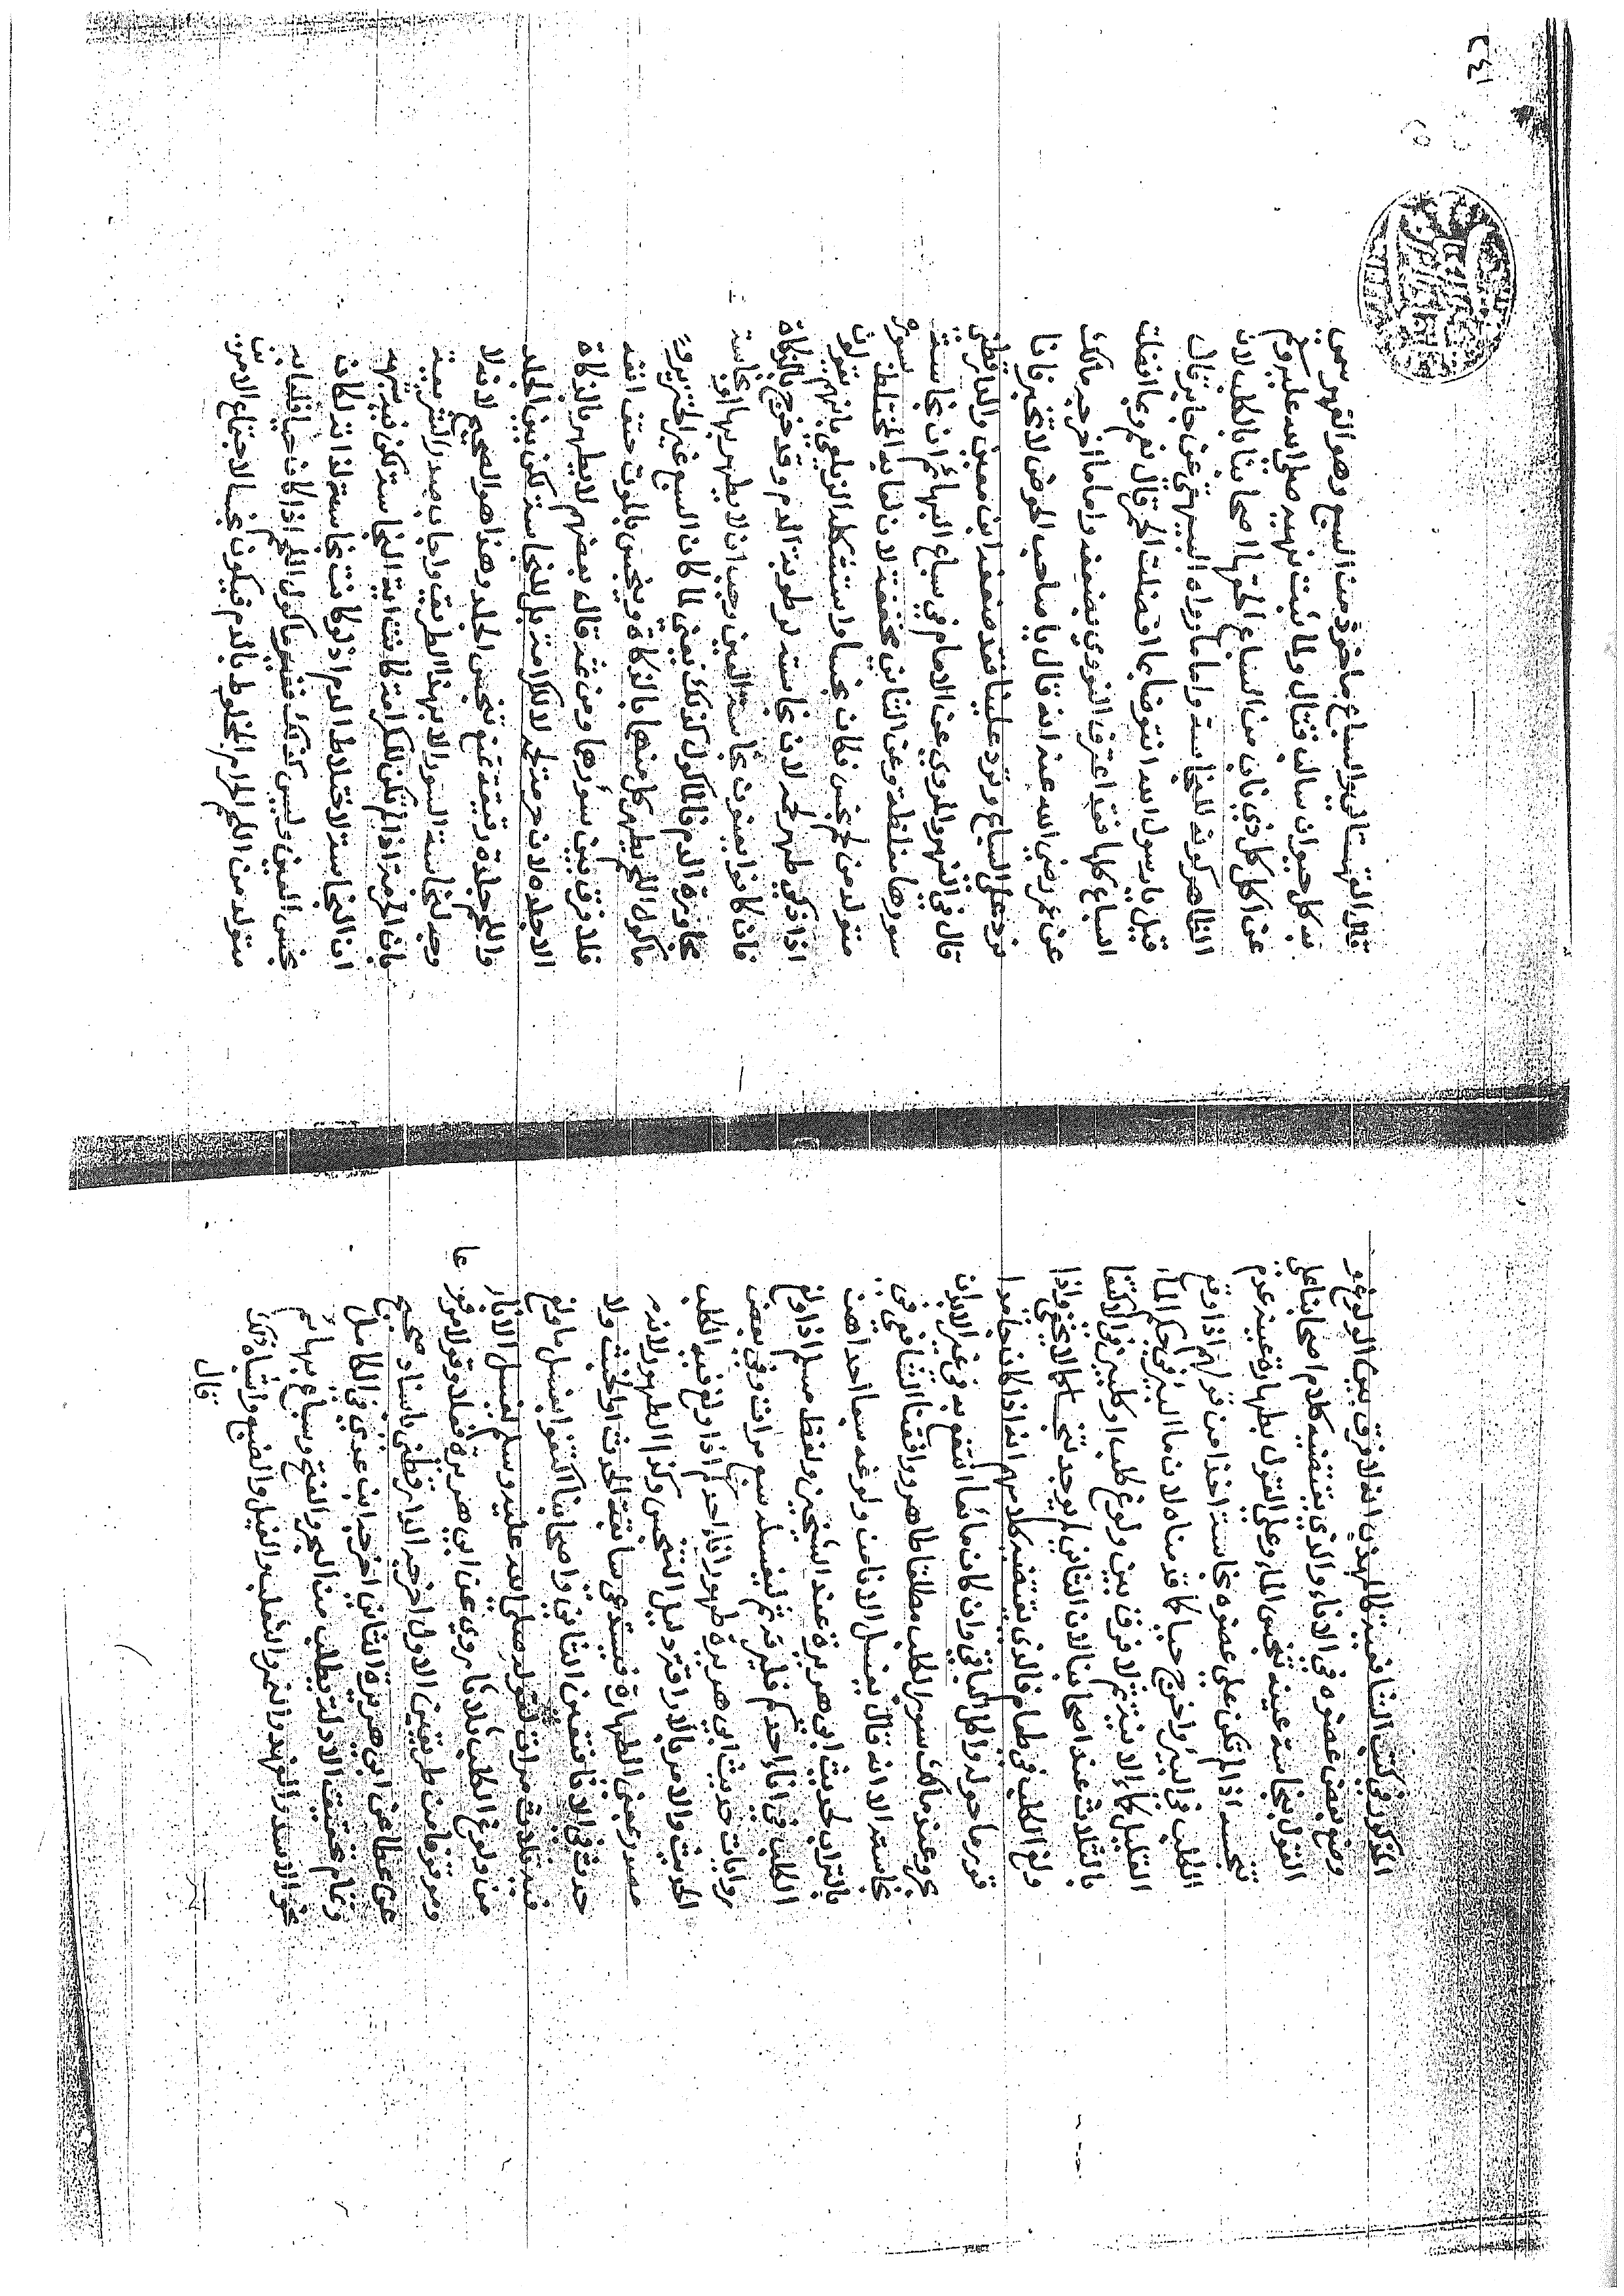 المذكور في كتب الشافعية كالمهذب انه لا فرق بين الولوغ و
وضع بعض عضوه في الاناء والذي يقتضيه كلام اصحابنا على
القول بنجاسة عينه تنجس الماء وعلى القول بطهارة عينه عدم
تنجسه اذا لم تكن على عضوه نجاسة اخذا من قولهم اذا وقع
الكلب في البئر واخرج حيا كما قدمناه لان ماء البئر في حكم الماء
القليل كماء الانية ثم لا فرق بين ولوغ كلب او كلبين في الاكتفا
بالثلاث عند اصحابنا لان الثاني لم يوجد تنجسا كما لا يخفى واذا
ولغ الكلب في طعام فالذي يقتضيه كلامهم انه اذا كان جامدا
قور ما حوله واكل الباقي وان كان مائعا انتفع به في غير الابدان
بحر وعند مالك سور الكلب مطلقا طاهر ووافقنا الشافعي في
نجاسته الا انه قال يغسل الانا من ولوغه سبعا احداهن
بالتراب لحديث ابي هريرة عند الشيخين ولفظ مسلم اذا ولغ
الكلب في اناء احدكم فليرقه ثم ليغسله سبع مرات وفي بعض
روايات حديث ابي هريرة طهور اناء احدكم اذا ولغ فيه الكلب
الحديث والامر بالاراقة دليل التنجس وكذا الطهور لانه
مصدر بمعنى الطهارة فيستدعي سابقة الحدث او الخبث ولا
حدث في الانا فتعين الثاني واصحابنا اكتفوا بغسل ما ولغ
فيه ثلاث مرات لقوله صلى الله عليه وسلم يغسل الانا
من ولوغ الكلب ثلاثا روي عن ابي هريرة فعلا وقولا مرفوعا
وموقوفا من طريقين الاول اخرجه الدارقطني باسناد صحيح
عن عطا عن ابي هريرة الثاني اخرجه ابن عدي في الكامل
وتمام تحقيق الادلة يطلب من البحر والفتح وسباع بهائم
نحو الاسد والفهد والنمر والثعلب والفيل والضبع واشباه ذلك
قال
قال القهستاني والسباع ماخوذ من السبع وهو القهر سمي
به كل حيوان سالب قتال ولما ثبت نهيه صلى الله عليه وسلم
عن اكل كل ذي ناب من السباع الحقها اصحابنا بالكلب لان
الظاهر كونه للنجاسة واما ما رواه البيهقي عن جابر قال
قيل يا رسول الله انتوضا بما افضلت الحمر قال نعم وبما افضلت
السباع كلها فقد اعترف النووي بضعفه واما ما اخرجه مالك
عن عمر رضي الله عنه انه قال يا صاحب الحوض لا تخبرنا فانا
نرد على السباع وترد علينا فقد ضعفه ابن معين والدارقطني
قال في النهر والمروي عن الامام في سباع البهائم ان نجاسة
سورها مغلظة وعن الثاني مخففة لان لعابه المختلط بسوره
متولد من لحم نجس فكان نجسا واستشكله الزيلعي بانهم يقولون
اذا ذكي طهر لحمه لان نجاسته لرطوبة الدم وقد خرج بالذكاة
فان كانوا يعنون نجاسة العين وجب ان لا يطهر بها او نجاسة
مجاورة الدم فالماكول كذلك يعني لما كان السبع غير الخنزير و
ماكول اللحم يطهر كل منهما بالذكاة وينجس بالموت حتف انفه
فلا فرق بين سورهما ومن ثم قال بعضهم لا يطهر بالذكاة
الا جلده لان حرمة لحمه لا لكرامته بل للنجاسة لكن بين الجلد
واللحم جلدة رقيقة تمنع تنجس الجلد وهذا هو الصحيح لانه لا
وجه لنجاسة السور الا بهذا الطريق واجاب صدر الشريعة
بان الحرمة اذا لم تكن للكرامة كانت اية النجاسة لكن فيه شبهة
ان النجاسة لاختلاط الدم اذ لو كانت نجاسته لذاته لكان
نجس العين وليس كذلك فغير ماكول اللحم اذا كان حيا فلعابه
متولد من اللحم الحرام المخلوط بالدم فيكون نجسا لاجتماع الامرين